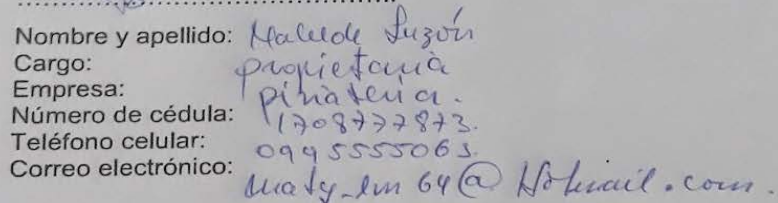 Nombre y apellido: Matilde Luzón
Cargo: propietaria
Empresa: piñateria.
Número de cédula: 1708777873.
Teléfono celular: 0995555063.
Correo electrónico: maty_lm64@Hotmail.com.